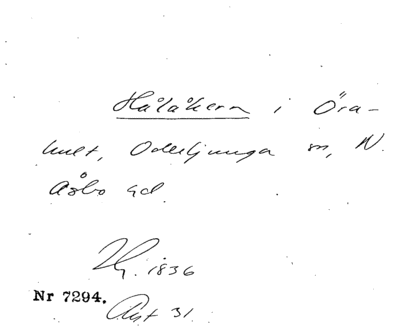 Hålåkern i Öra-
hult, Oderljunga sn, N.
Åsbo hd.
Hg. 1836
Nr 7294.
Akt 31.